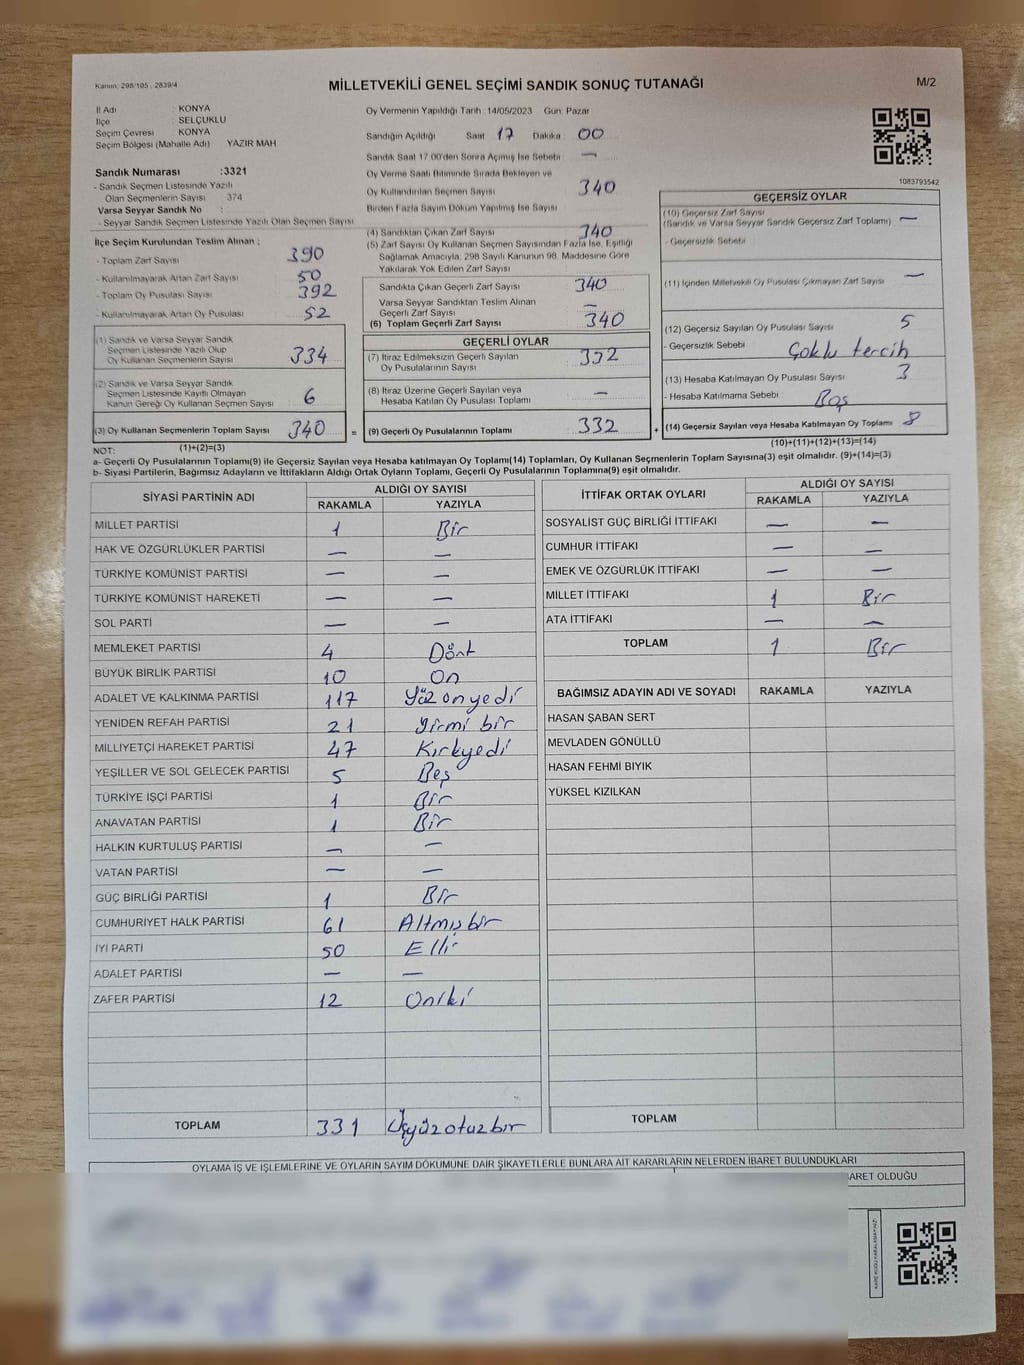 Kanun: 298/105 , 2839/4
MİLLETVEKİLİ GENEL SEÇİMİ SANDIK SONUÇ TUTANAĞI
M/2
İl Adı : KONYA
İlçe : SELÇUKLU
Seçim Çevresi : KONYA
Seçim Bölgesi (Mahalle Adı) YAZIR MAH
Sandık Numarası :3321
- Sandık Seçmen Listesinde Yazılı
Olan Seçmenlerin Sayısı 374
Varsa Seyyar Sandık No :
- Seyyar Sandık Seçmen Listesinde Yazılı Olan Seçmen Sayısı
Oy Vermenin Yapıldığı Tarih : 14/05/2023 Gün: Pazar
Sandığın Açıldığı Saat 17 Dakika : 00
Sandık Saat 17:00'den Sonra Açılmış İse Sebebi : —
Oy Verme Saati Bitiminde Sırada Bekleyen ve
Oy Kullandırılan Seçmen Sayısı 340
Birden Fazla Sayım Döküm Yapılmış İse Sayısı
1083793542
İlçe Seçim Kurulundan Teslim Alınan ;
- Toplam Zarf Sayısı 390
- Kullanılmayarak Artan Zarf Sayısı 50
- Toplam Oy Pusulası Sayısı 392
- Kullanılmayarak Artan Oy Pusulası 52
(1) Sandık ve Varsa Seyyar Sandık
Seçmen Listesinde Yazılı Olup
Oy Kullanan Seçmenlerin Sayısı 334
(2) Sandık ve Varsa Seyyar Sandık
Seçmen Listesinde Kayıtlı Olmayan
Kanun Gereği Oy Kullanan Seçmen Sayısı 6
(3) Oy Kullanan Seçmenlerin Toplam Sayısı 340 =
(4) Sandıktan Çıkan Zarf Sayısı 340
(5) Zarf Sayısı Oy Kullanan Seçmen Sayısından Fazla İse, Eşitliği
Sağlamak Amacıyla, 298 Sayılı Kanunun 98. Maddesine Göre
Yakılarak Yok Edilen Zarf Sayısı
Sandıkta Çıkan Geçerli Zarf Sayısı 340
Varsa Seyyar Sandıktan Teslim Alınan
Geçerli Zarf Sayısı —
(6) Toplam Geçerli Zarf Sayısı 340
GEÇERLİ OYLAR
(7) İtiraz Edilmeksizin Geçerli Sayılan
Oy Pusulalarının Sayısı 332
(8) İtiraz Üzerine Geçerli Sayılan veya
Hesaba Katılan Oy Pusulası Toplamı —
(9) Geçerli Oy Pusulalarının Toplamı 332 +
GEÇERSİZ OYLAR
(10) Geçersiz Zarf Sayısı
(Sandık ve Varsa Seyyar Sandık Geçersiz Zarf Toplamı) —
- Geçersizlik Sebebi
(11) İçinden Milletvekili Oy Pusulası Çıkmayan Zarf Sayısı —
(12) Geçersiz Sayılan Oy Pusulası Sayısı 5
- Geçersizlik Sebebi Çoklu tercih
(13) Hesaba Katılmayan Oy Pusulası Sayısı 3
- Hesaba Katılmama Sebebi Boş
(14) Geçersiz Sayılan veya Hesaba Katılmayan Oy Toplamı 8
NOT: (1)+(2)=(3) (10)+(11)+(12)+(13)=(14)
a- Geçerli Oy Pusulalarının Toplamı(9) ile Geçersiz Sayılan veya Hesaba katılmayan Oy Toplamı(14) Toplamları, Oy Kullanan Seçmenlerin Toplam Sayısına(3) eşit olmalıdır. (9)+(14)=(3)
b- Siyasi Partilerin, Bağımsız Adayların ve İttifakların Aldığı Ortak Oyların Toplamı, Geçerli Oy Pusulalarının Toplamına(9) eşit olmalıdır.
SİYASİ PARTİNİN ADI ALDIĞI OY SAYISI
RAKAMLA YAZIYLA
MİLLET PARTİSİ 1 Bir
HAK VE ÖZGÜRLÜKLER PARTİSİ — —
TÜRKİYE KOMÜNİST PARTİSİ — —
TÜRKİYE KOMÜNİST HAREKETİ — —
SOL PARTİ — —
MEMLEKET PARTİSİ 4 Dört
BÜYÜK BİRLİK PARTİSİ 10 On
ADALET VE KALKINMA PARTİSİ 117 Yüz onyedi
YENİDEN REFAH PARTİSİ 21 Yirmi bir
MİLLİYETÇİ HAREKET PARTİSİ 47 Kırkyedi
YEŞİLLER VE SOL GELECEK PARTİSİ 5 Beş
TÜRKİYE İŞÇİ PARTİSİ 1 Bir
ANAVATAN PARTİSİ 1 Bir
HALKIN KURTULUŞ PARTİSİ — —
VATAN PARTİSİ — —
GÜÇ BİRLİĞİ PARTİSİ 1 Bir
CUMHURİYET HALK PARTİSİ 61 Altmışbir
İYİ PARTİ 50 Elli
ADALET PARTİSİ — —
ZAFER PARTİSİ 12 Oniki
TOPLAM 331 Üçyüzotuzbir
İTTİFAK ORTAK OYLARI ALDIĞI OY SAYISI
RAKAMLA YAZIYLA
SOSYALİST GÜÇ BİRLİĞİ İTTİFAKI — —
CUMHUR İTTİFAKI — —
EMEK VE ÖZGÜRLÜK İTTİFAKI — —
MİLLET İTTİFAKI 1 Bir
ATA İTTİFAKI — —
TOPLAM 1 Bir
BAĞIMSIZ ADAYIN ADI VE SOYADI RAKAMLA YAZIYLA
HASAN ŞABAN SERT
MEVLADEN GÖNÜLLÜ
HASAN FEHMİ BIYIK
YÜKSEL KIZILKAN
TOPLAM
OYLAMA İŞ VE İŞLEMLERİNE VE OYLARIN SAYIM DÖKÜMÜNE DAİR ŞİKAYETLERLE BUNLARA AİT KARARLARIN NELERDEN İBARET BULUNDUKLARI
BARET OLDUĞU